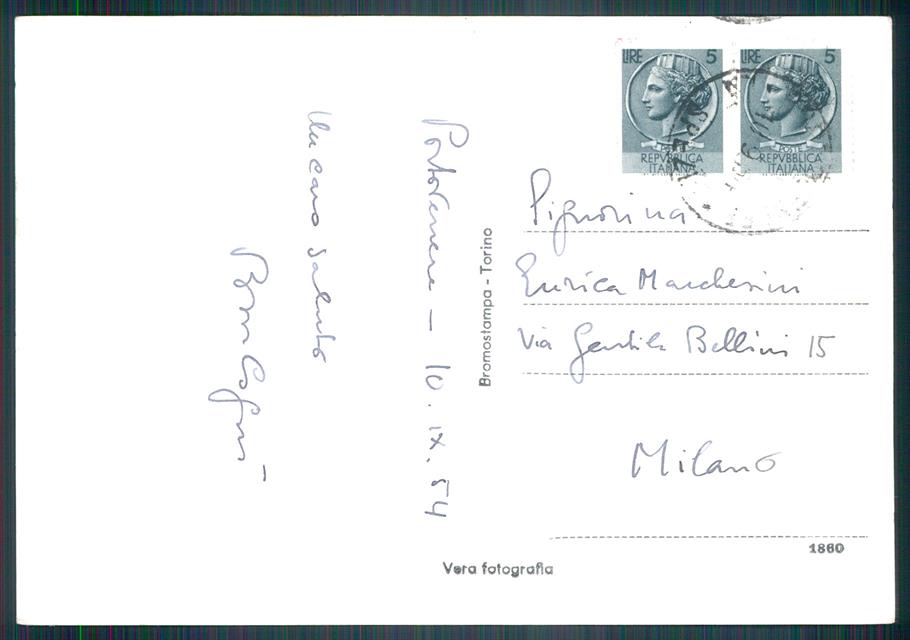 Portovenere – 10. IX. 54
Un caro saluto
LIRE 5
POSTE
REPVBBLICA
ITALIANA
LIRE 5
POSTE
REPVBBLICA
ITALIANA
Signorina
Enrica Marcherini
Via Gentile Bellini 15
Milano
Bromostampa - Torino
1860
Vera fotografia